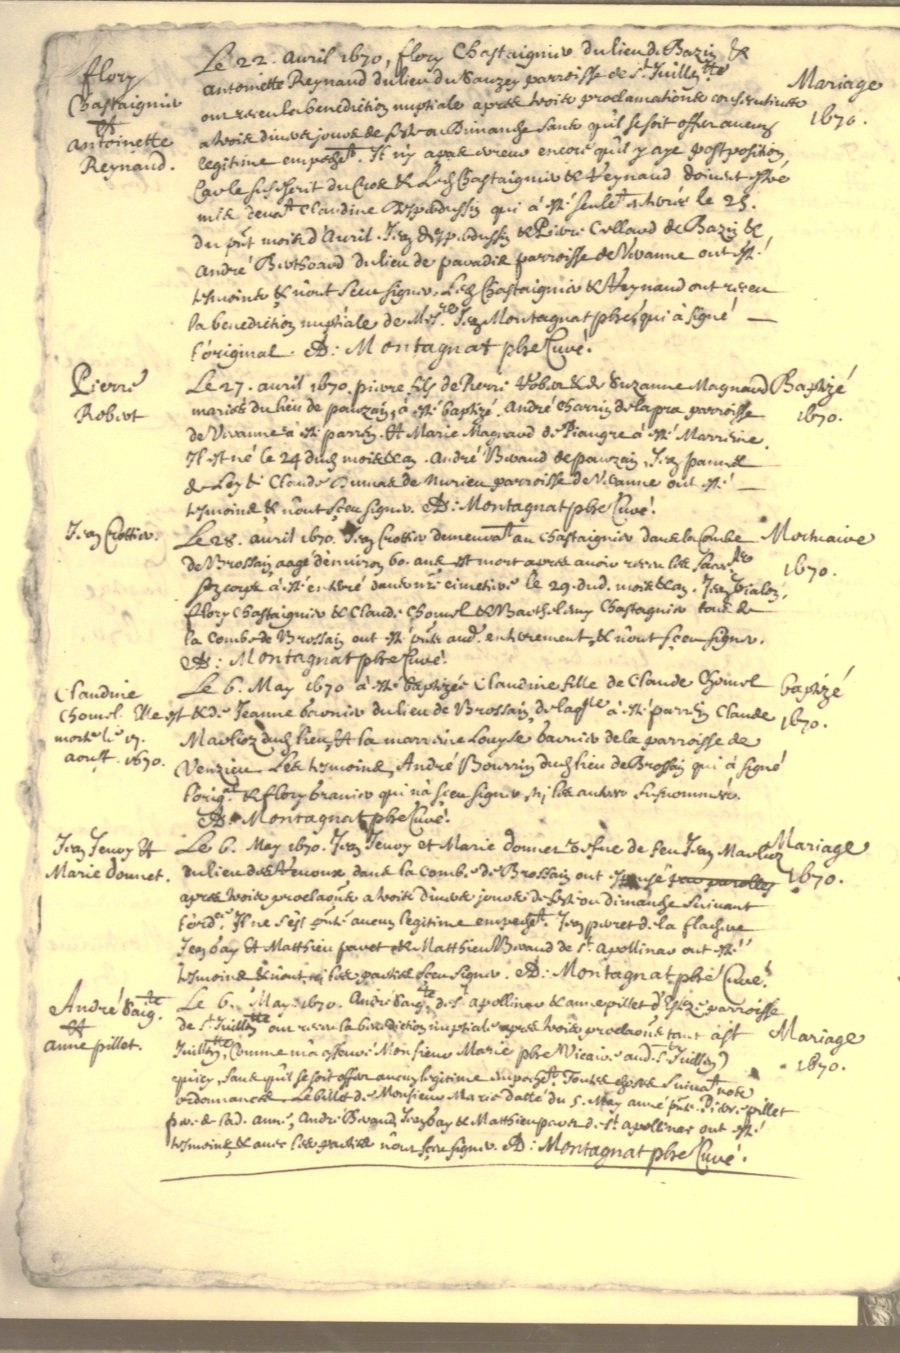 flory
Chastaignier
et
Antoinette
Reynaud.
Le 22. Avril 1670, flory Chastaignier du lieu de Bazin &
Antoinette Reynaud du lieu du Sauzey parroisse de St Juillien
ont receu la benediction nuptiale apres trois proclamations
a trois divers jours de feste ou Dimanche sans qu'il se soit offer aucun
legitime empeschet. Il n'y a pas encore qu'il y aye postposition
Car le & Lesd Chastaignier & Reynaud doivent estre
mis devat Claudine qui à esté seulet le 25.
du pnt mois d'Avril. Jean & Pierre Collaud de Bazin &
André Berthoard du lieu de paradis parroisse de Vivanne ont esté
tesmoins & n'ont sceu signer. Lesd Chastaignier & Reynaud ont receu
la benediction nuptiale de Mre Jean Montagnat pbre, qui à signé
l'original. A: Montagnat pbre Curé.
Mariage
1670.
Pierre
Robert
Le 27. avril 1670. pierre fils de Pierre Robert & de Suzanne Magnaud
mariés du lieu de pauzain à esté baptizé. André Charrin de la pra parroisse
de Vivanne à esté parrin. Et Marie Magnaud de Piangre à esté Marrine.
Il est né le 24 dud mois & an. André Beraud de pauzain, Jean
de & Claude de parroisse de Vivanne ont esté
tesmoins & n'ont sceu signer. A: Montagnat pbre Curé.
Baptizé
1670.
Jean Crottier.
Le 28. avril 1670. Jean Crottier demeurat au Chastaignier dans la Combe
de Brossain aagé d'environ 60. ans est mort apres avoir receu les Sacrts
son corps à esté enterré dans nre cimetiere le 29. dud. mois & an. Jean Vialon,
flory Chastaignier & Claude Chomel & Barthelemy Chastagnier tous de
la Combe de Brossain ont esté pnts aud. enterrement, & n'ont sceu signer.
A: Montagnat pbre Curé.
Mortuaire
1670.
Claudine
Chomel. Elle est
morte le 17.
aoust. 1670.
Le 6. May 1670 à esté baptizée Claudine fille de Claude Chomel
& de Jeanne bavnier du lieu de Brossain, de laqlle à esté parrin Claude
Marlioz dud lieu, Et la marrine Louyse bavnier de la parroisse de
Venzieu. Les tesmoins, André Bourrin dud lieu de Brossain qui à signé
l'origt. & flory qui n'a sceu signer ni les autres susnommés.
A: Montagnat pbre Curé.
baptizé
1670.
Jean Jenoy Et
Marie donnet.
Le 6. May 1670. Jean Jenoy et Marie donnet vefue de feu Jean Marlioz
du lieu des dans la Combe de Brossain ont
apres trois proclaons a trois divers jours de feste ou dimanche suivant
l'ord. Il ne s'est pnté aucun legitime empeschet. Jean de la flachere
Jean bay Et Matthieu pavet & Matthieu Beraud de St. apollinar ont esté
tesmoins & n'ont ni les parties sceu signer. A: Montagnat pbre Curé.
Mariage
1670.
André Saig.te
Et
anne pillet.
Le 6. May. 1670. André Saig.te de St. apollinar & anne pillet parroisse
de St Juillien ont receu la benediction nuptiale apres trois proclaons tant à St
Juillien, (comme m'a assuré Monsieur Marie pbre Vicaire aud. St. Juillien)
qu'icy, sans qu'il se soit offer aucun legitime empeschet. Toutes choses suivat
ordonnances. Le billet de Monsieur Marie datté du 5. May année pnte. Pierre pillet
pere de lad. anne, André Beraud Jean bay & Matthieu pavet de St. apollinar ont esté
tesmoins, & avec les parties n'ont sceu signer. A: Montagnat pbre Curé.
Mariage
1670.